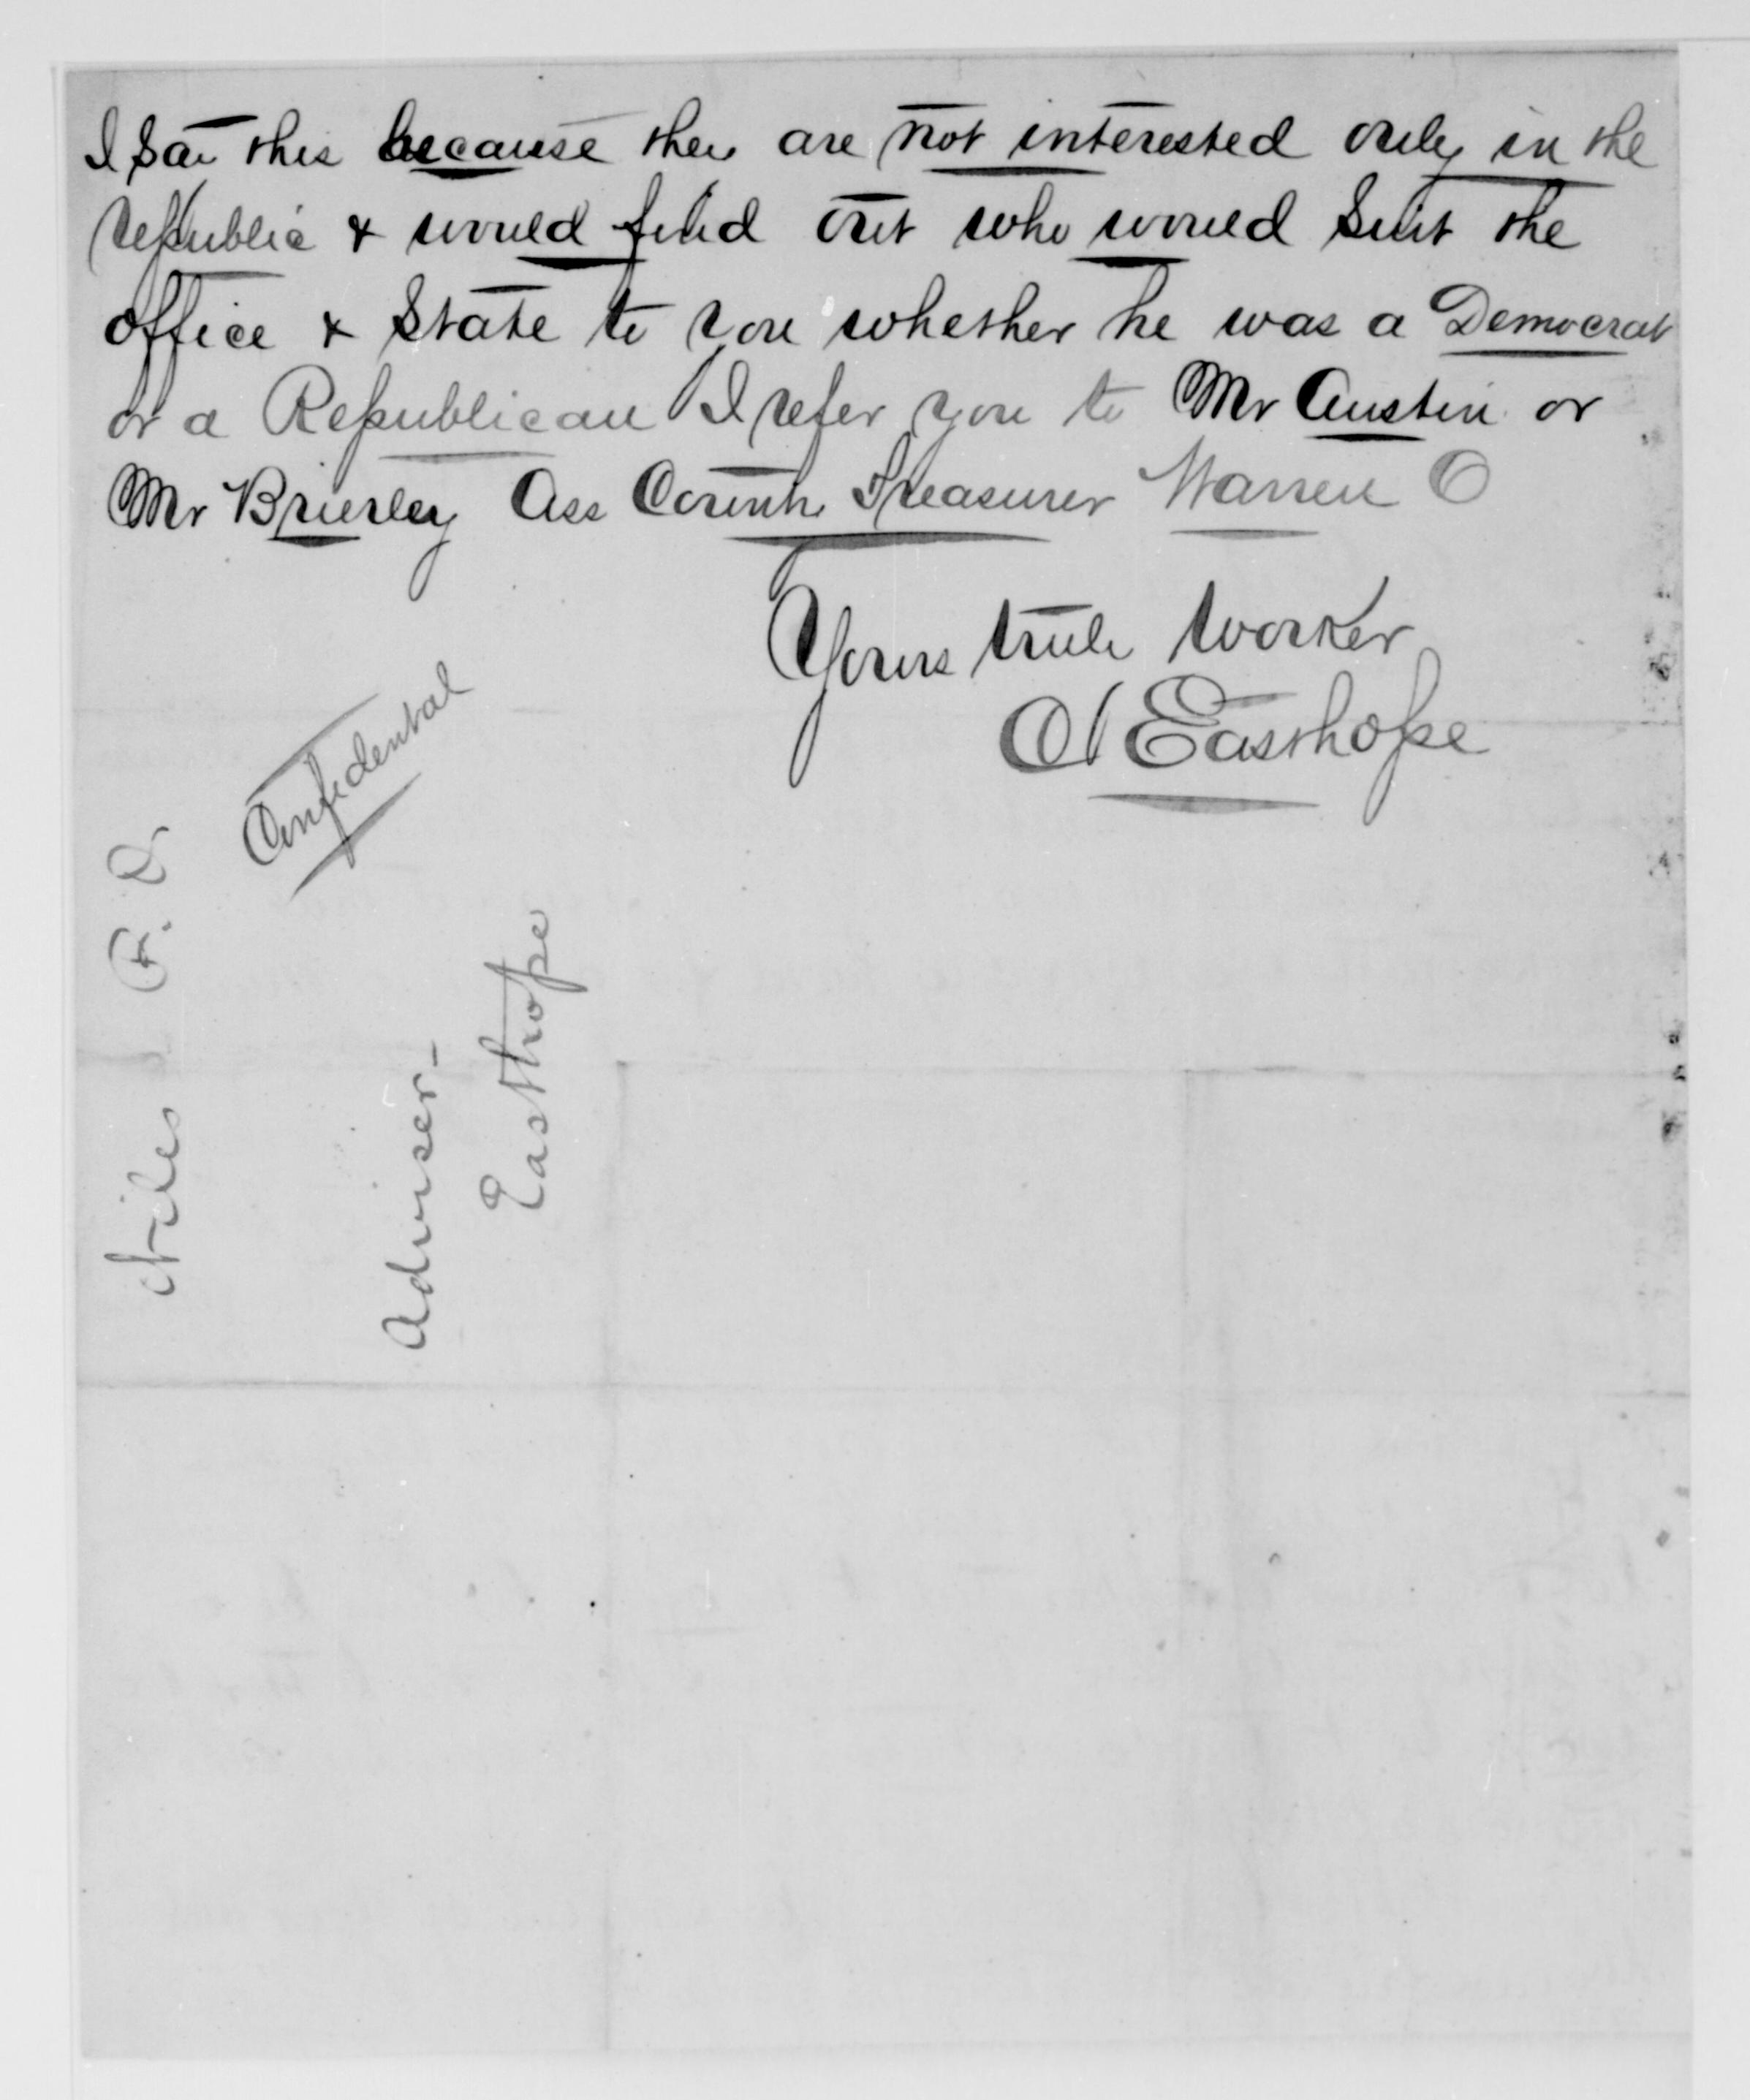 I Say this because they are not interested only in the
republic & would find out who would Suit the
office & State to you whether he was a Democrat
or a Republican I refer you to Mr Austin or
Mr Brierley Ass County Treasurer Warren O
Yours truly Worker
Easthope
Confidental
Niles P. O.
Adviser-
Easthope